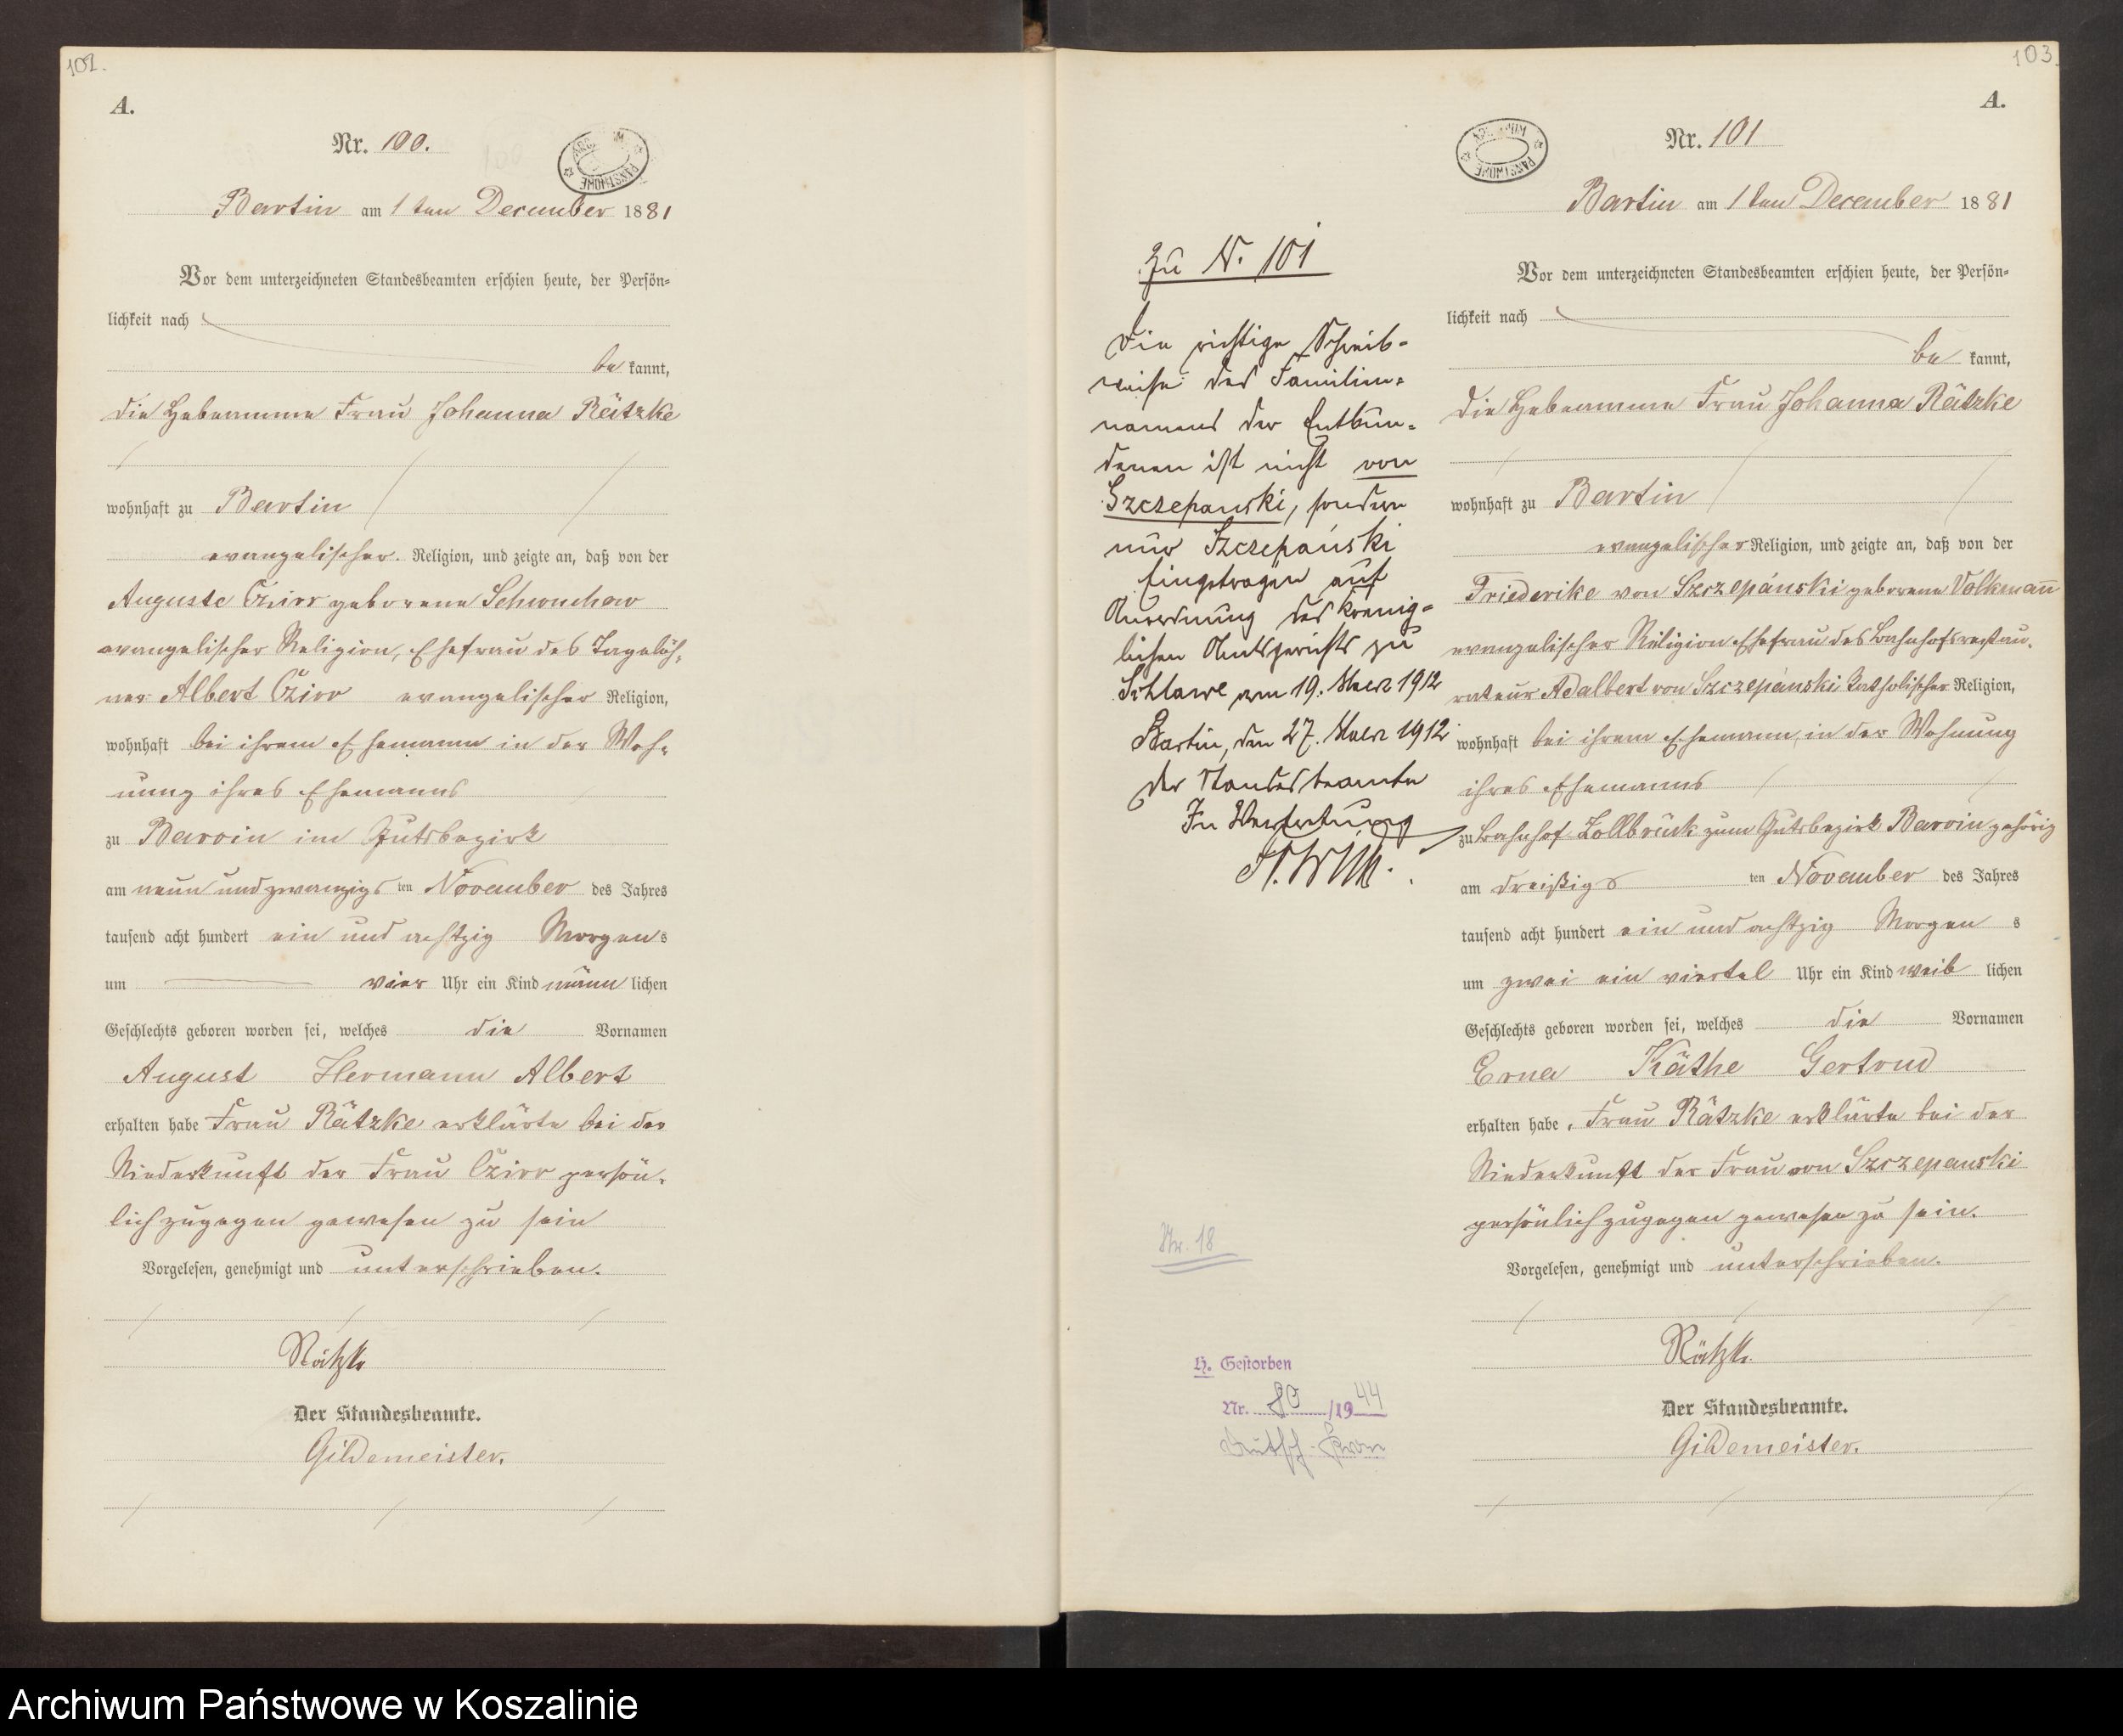 102.
A.
Nr. 100.
Bartin am 1 ten December 1881
Vor dem unterzeichneten Standesbeamten erschien heute, der Persön=
lichkeit nach
be kannt,
die Hebeamme Frau Johanna Rätzke
wohnhaft zu Bartin
evangelischer Religion, und zeigte an, daß von der
Auguste Czirr geborene Schwuchow
evangelischer Religion, Ehefrau des Tagelöh=
ner Albert Czirr evangelischer Religion,
wohnhaft bei ihrem Ehemann in der Woh=
nung ihres Ehemanns
zu Barvin im Gutsbezirk
am neun und zwanzigs ten November des Jahres
tausend acht hundert ein und achtzig Morgens
um vier Uhr ein Kind männ lichen
Geschlechts geboren worden sei, welches die Vornamen
August Hermann Albert
erhalten habe Frau Rätzke erklärte bei der
Niederkunft der Frau Czirr persön=
lich zugegen gewesen zu sein
Vorgelesen, genehmigt und unterschrieben.
Rätzke
Der Standesbeamte.
Gildemeister.
103.
A.
Nr. 101
Bartin am 1 ten December 1881
Vor dem unterzeichneten Standesbeamten erschien heute, der Persön=
lichkeit nach
be kannt,
die Hebeamme Frau Johanna Rätzke
wohnhaft zu Bartin
evangelischer Religion, und zeigte an, daß von der
Friederike von Szczepánski geborene Volkman̄
evangelischer Religion Ehefrau des Bahnhofsrestau=
rateur Adalbert von Szczepánski katholischer Religion,
wohnhaft bei ihrem Ehemann, in der Wohnung
ihres Ehemanns
zu Bahnhof Zollbrück zum Gutsbezirk Barvin gehörig
am dreißigs ten November des Jahres
tausend acht hundert ein und achtzig Morgen s
um zwei ein viertel Uhr ein Kind weib lichen
Geschlechts geboren worden sei, welches die Vornamen
Erna Käthe Gertrud
erhalten habe. Frau Rätzke erklärte bei der
Niederkunft der Frau von Szczepanski
persönlich zugegen gewesen zu sein.
Vorgelesen, genehmigt und unterschrieben.
Rätzke
Der Standesbeamte.
Gildemeister.
Zu N. 101
Die richtige Schreib=
weise des Familien=
namens der Entbun=
denen ist nicht von
Szczepanski, sondern
nur Szczepański
Eingetragen auf
Anordnung des Koenig=
lichen Amtsgerichts zu
Schlawe vom 19. Maerz 1912
Bartin, den 27. Maerz 1912.
Der Standesbeamte
In Vertretung
Nr. 18
H. Gestorben
Nr. 80 /1944
Deutsch-Krone
Archiwum Państwowe w Koszalinie